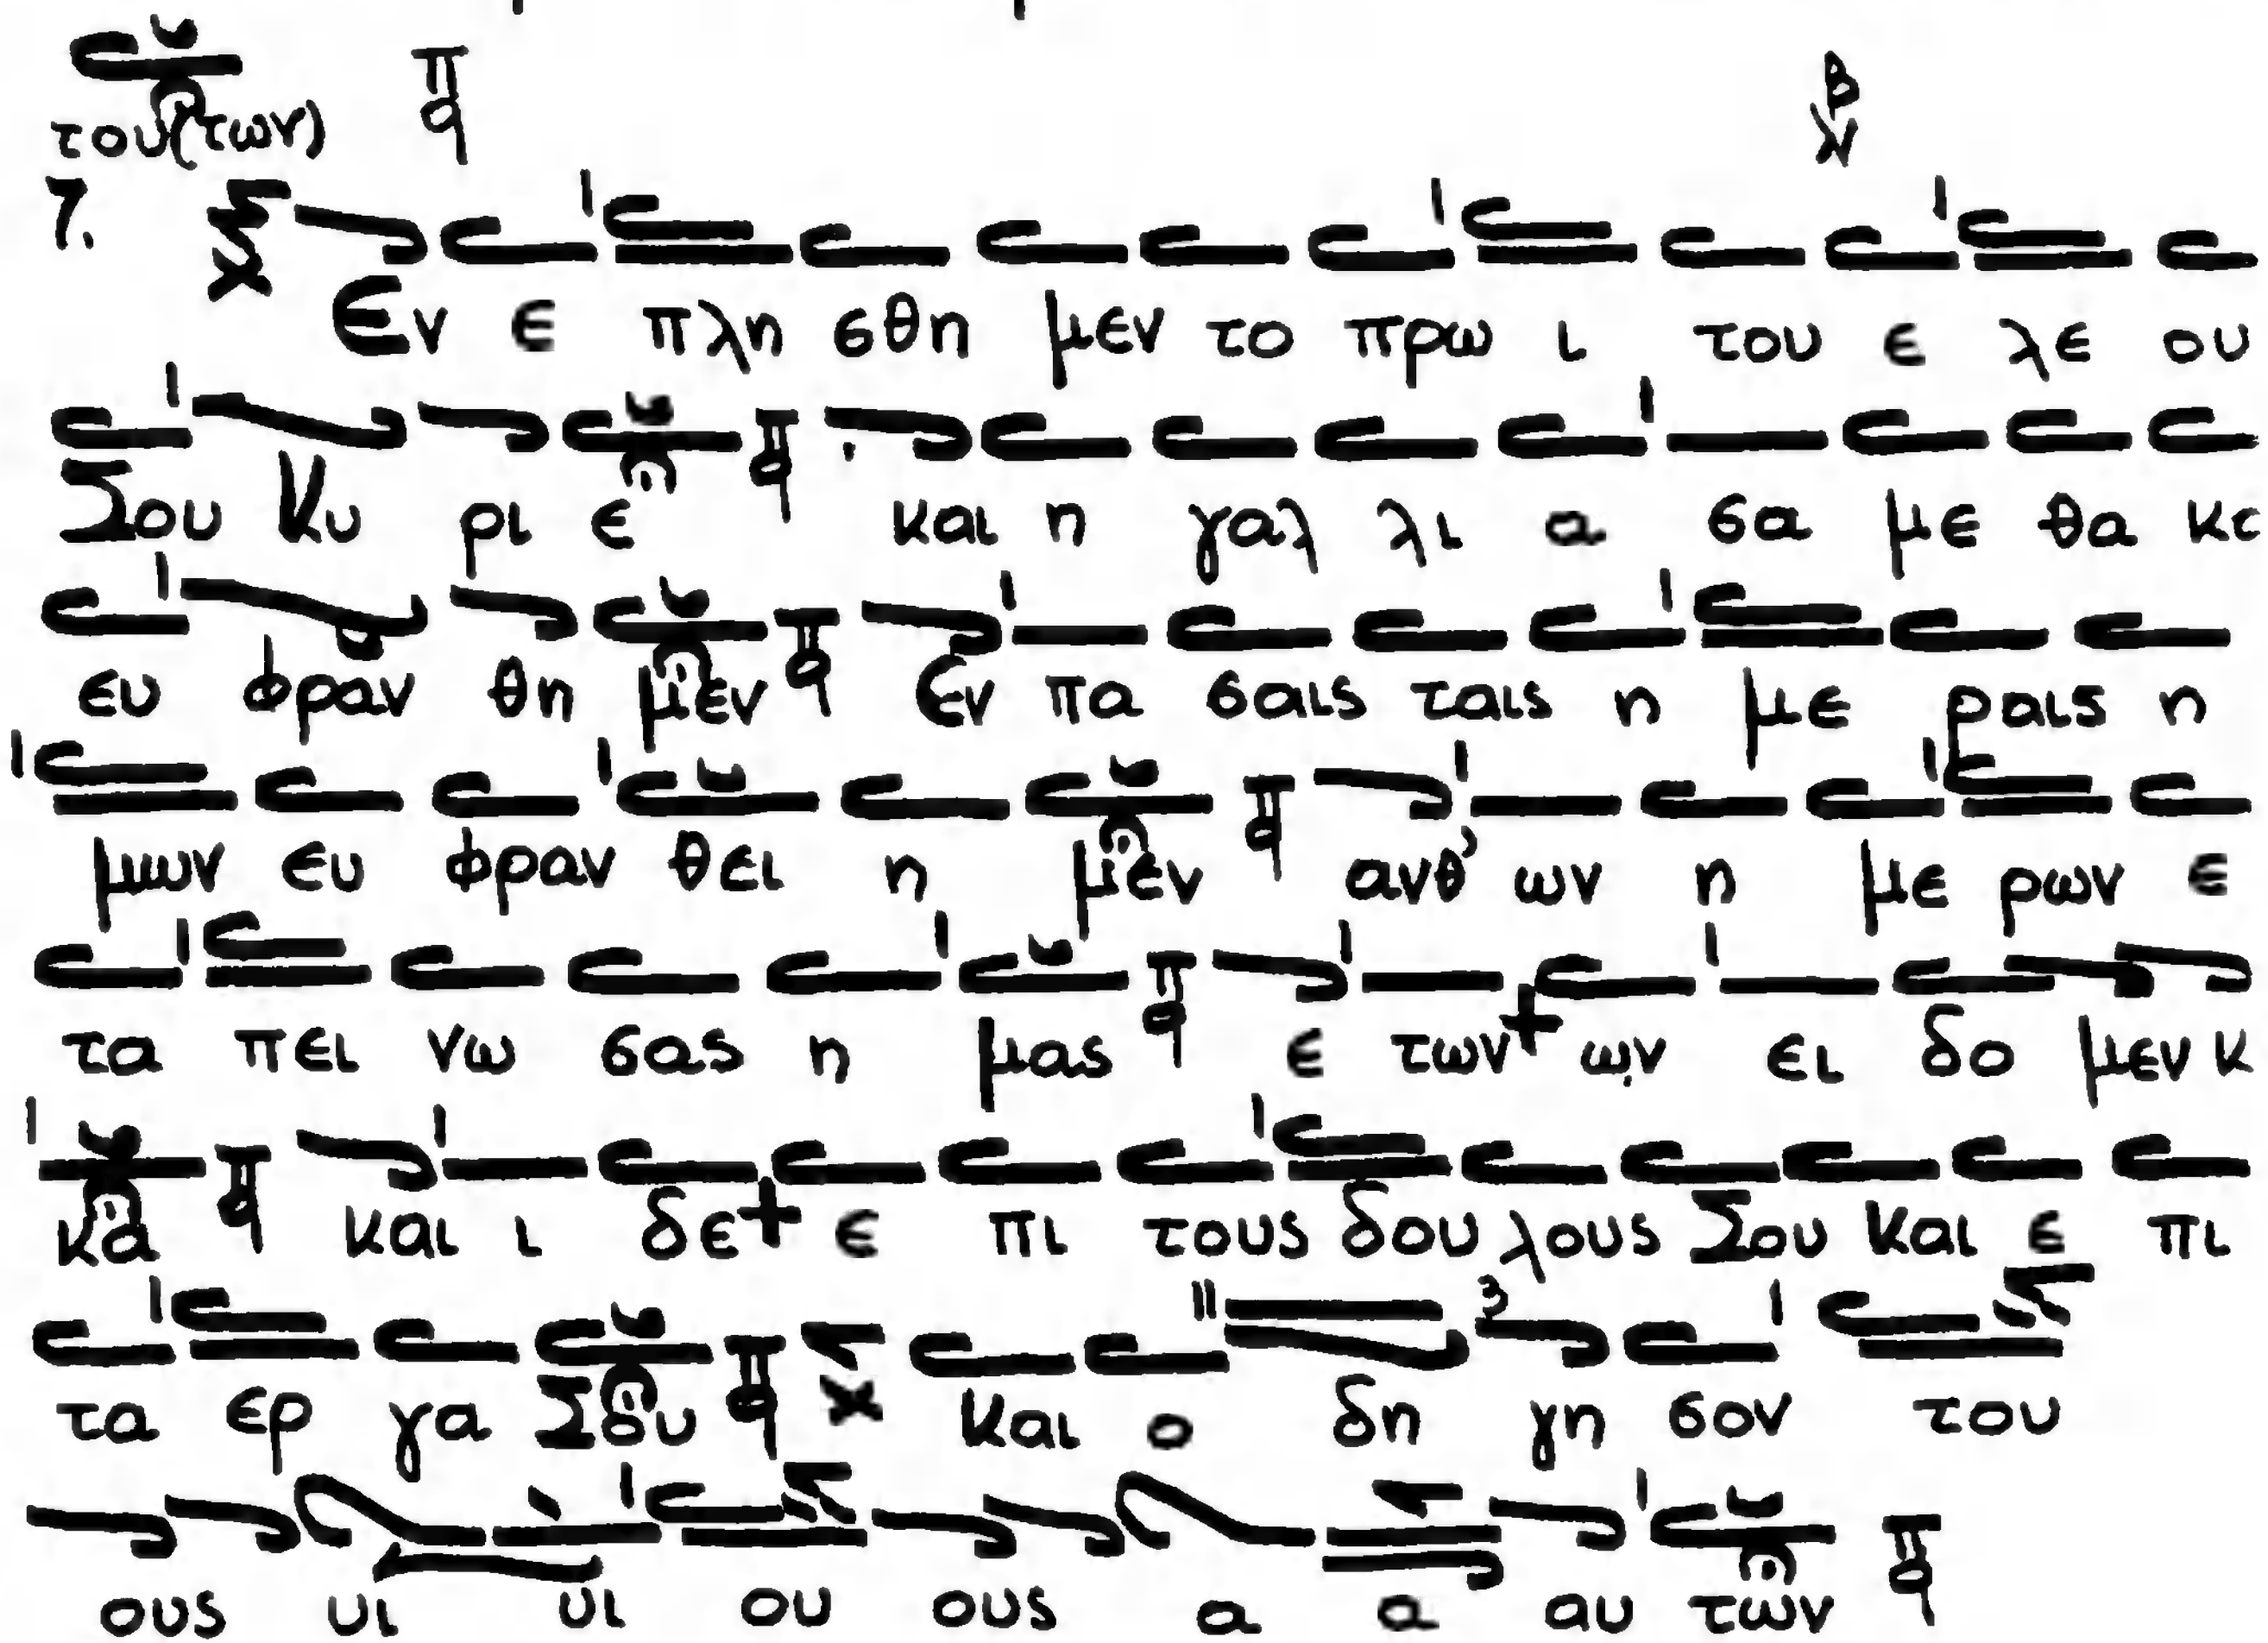 του(των) π β
7. Εν ε πλη σθη μεν το πρω ι του ε λε ου
Σου Κυ ρι ε και η γαλ λι α σα με θα κ
ευ φραν θη μεν εν πα σαις ταις η με ραις η
μων ευ φραν θει η μεν ανθ' ων η με ρων ε
τα πει νω σας η μας ε των ων ει δο μεν κ
κα και ι δε ε πι τους δου λους Σου και ε πι
τα ερ γα Σου και ο δη γη σον του
ους υι υι ου ους α α αυ των